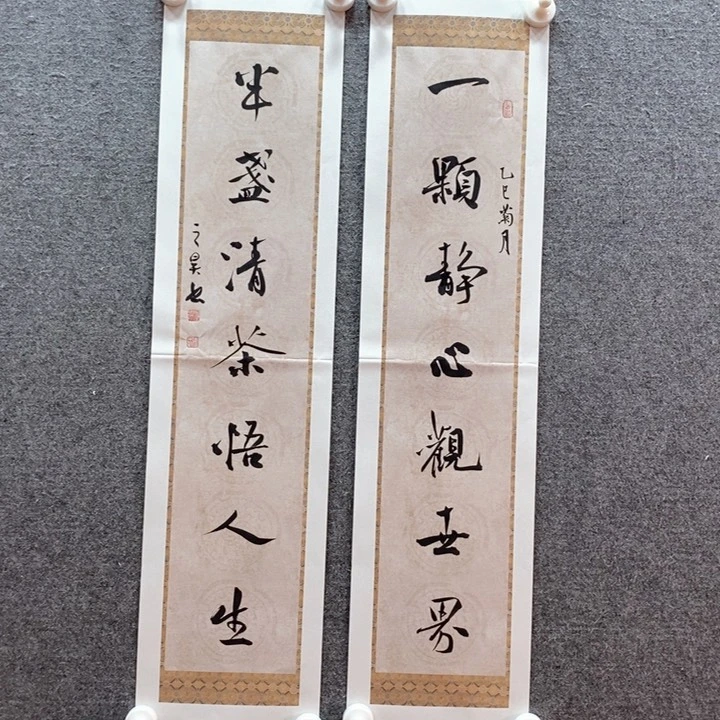 一顆静心觀世界
乙巳菊月
半盞清茶悟人生
之昊书